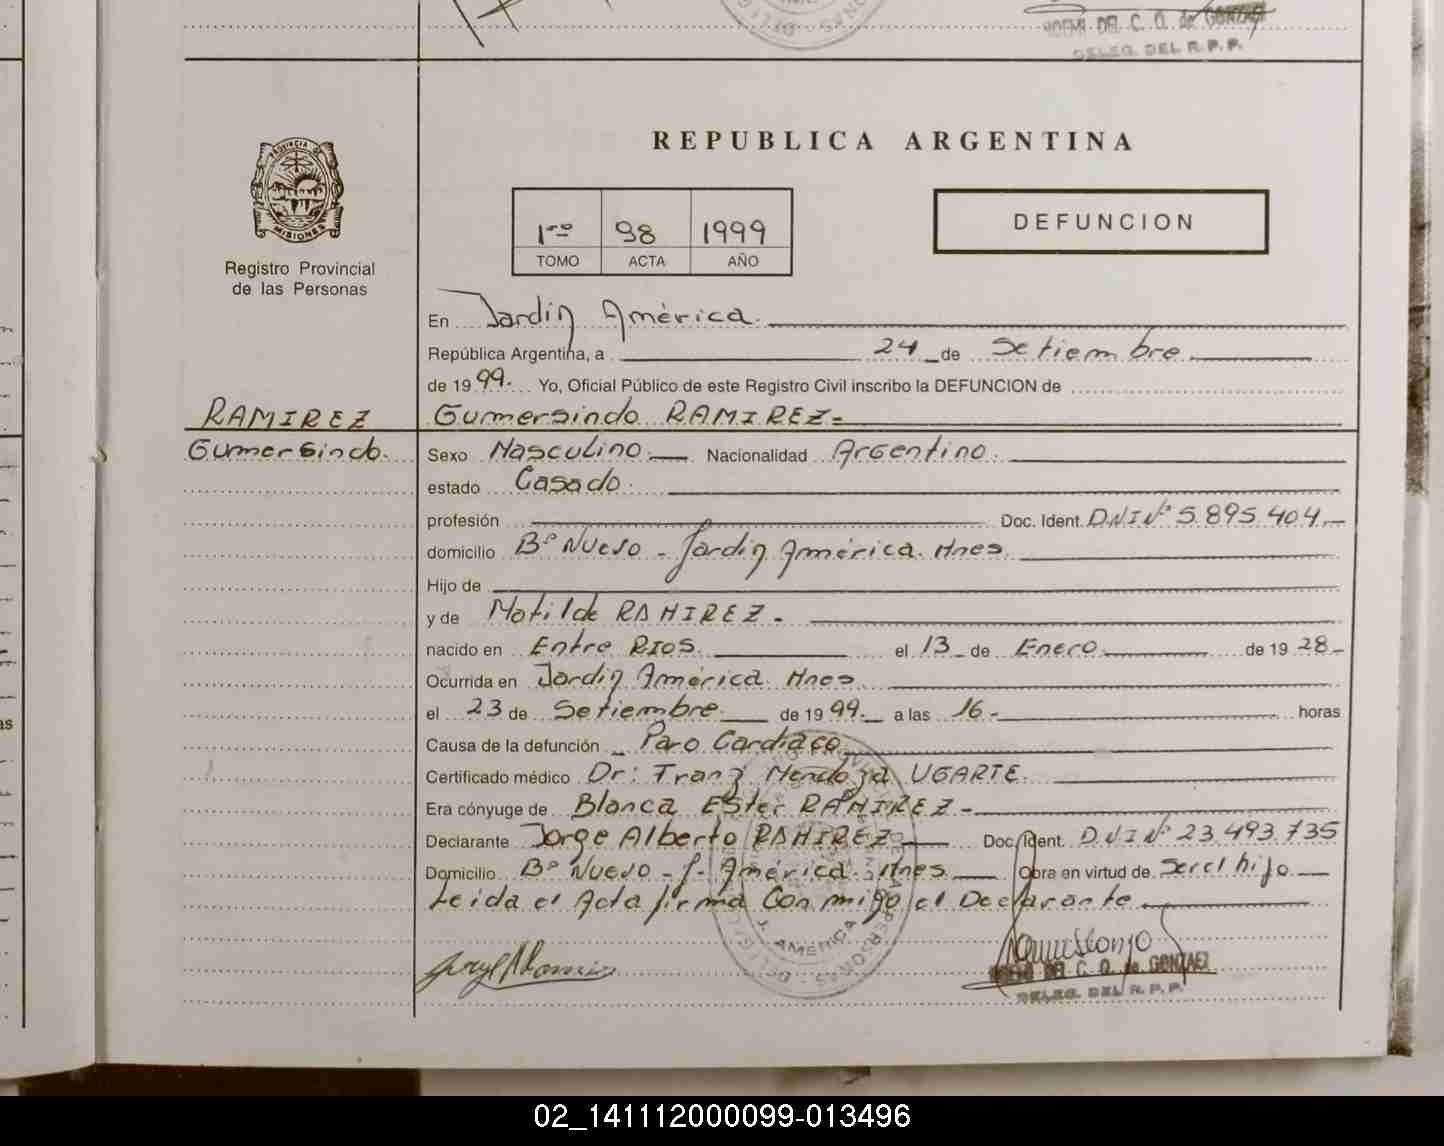 NOEMI DEL C. O. de GONZALEZ
DELEG. DEL R. P. P.
PROVINCIA DE
MISIONES
Registro Provincial
de las Personas
REPUBLICA ARGENTINA
1ro 98 1999
TOMO ACTA AÑO
DEFUNCION
En Jardín América.
República Argentina, a 24 de Setiembre
de 1999. Yo, Oficial Público de este Registro Civil inscribo la DEFUNCION de
RAMIREZ
Gumersindo RAMIREZ-
Gumersindo.
Sexo Masculino Nacionalidad Argentino.
estado Casado.
profesión Doc. Ident. D.N.I Nº 5.895.404.-
domicilio Bº Nuevo - Jardín América. Mnes.
Hijo de
y de Matilde RAMIREZ.-
nacido en Entre RIOS. el 13 de Enero de 1928-
Ocurrida en Jardín América Mnes
el 23 de Setiembre de 1999. a las 16- horas
Causa de la defunción Paro Cardíaco
Certificado médico Dr: Franz Mendoza UGARTE.
Era cónyuge de Blanca Ester RAMIREZ-
Declarante Jorge Alberto RAMIREZ Doc. Ident. D.N.I Nº 23.493.735
Domicilio Bº Nuevo - J. América. Mnes Obra en virtud de Ser el hijo
Leida el Acta firma Con migo el Declarante
J. AMERICA
NOEMI DEL C. O. de GONZALEZ
DELEG. DEL R. P. P.
as
02_141112000099-013496